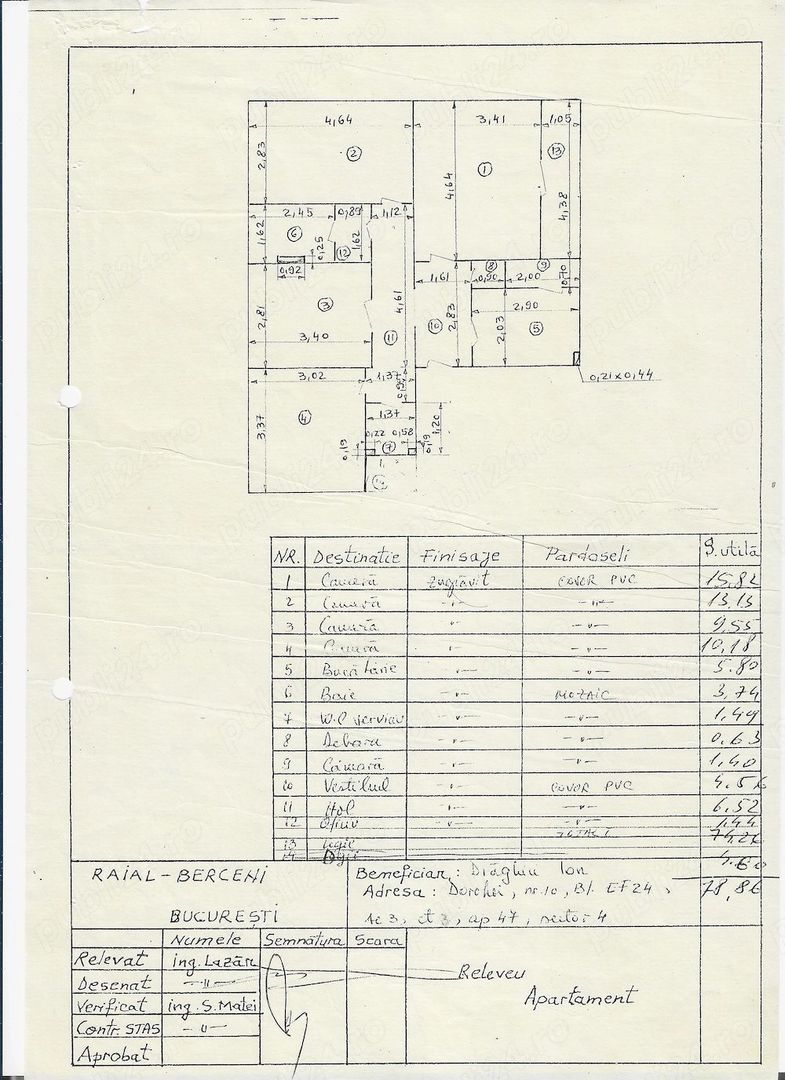 4,64 3,41 1,05
2,83 2 1 13
4,64 4,38
2,45 0,89 1,12
1,62 6 0,25 12 1,62
0,92 1,61 8 0,90 9 2,00 0,70
2,81 3 4,61 2,83 2,90
3,40 11 10 2,03 5
3,02 1,37 0,21x0,44
3,37 4 1,37 1,20
0,22 0,58
0,19 7 0,19
NR. Destinatie Finisaje Pardoseli S. utilă
1 Cameră zugrăvit COVOR PVC 15,82
2 Cameră -"- -"- 13,13
3 Cameră -"- -"- 9,55
4 Cameră -"- -"- 10,18
5 Bucătărie -"- -"- 5.80
6 Baie -"- MOZAIC 3,74
7 W.C serviciu -"- -"- 1,49
8 Debara -"- -"- 0,63
9 Cămară -"- -"- 1,40
10 Vestibul -"- COVOR PVC 4,56
11 Hol -"- -"- 6,52
12 Oficiu -"- -"- 1,44
TOTAL 74,26
13 Logie
14 4.60
RAIAL-BERCENI
BUCUREȘTI
Beneficiar: Drăghiu Ion
Adresa: Dorohoi, nr.10, Bl. EF24, 78,86
sc 3, et 3, ap 47, sector 4
Numele Semnătura Scara
Relevat ing. Lazăr
Desenat -"-
Verificat ing. S. Matei
Contr. STAS -"-
Aprobat
Releveu
Apartament